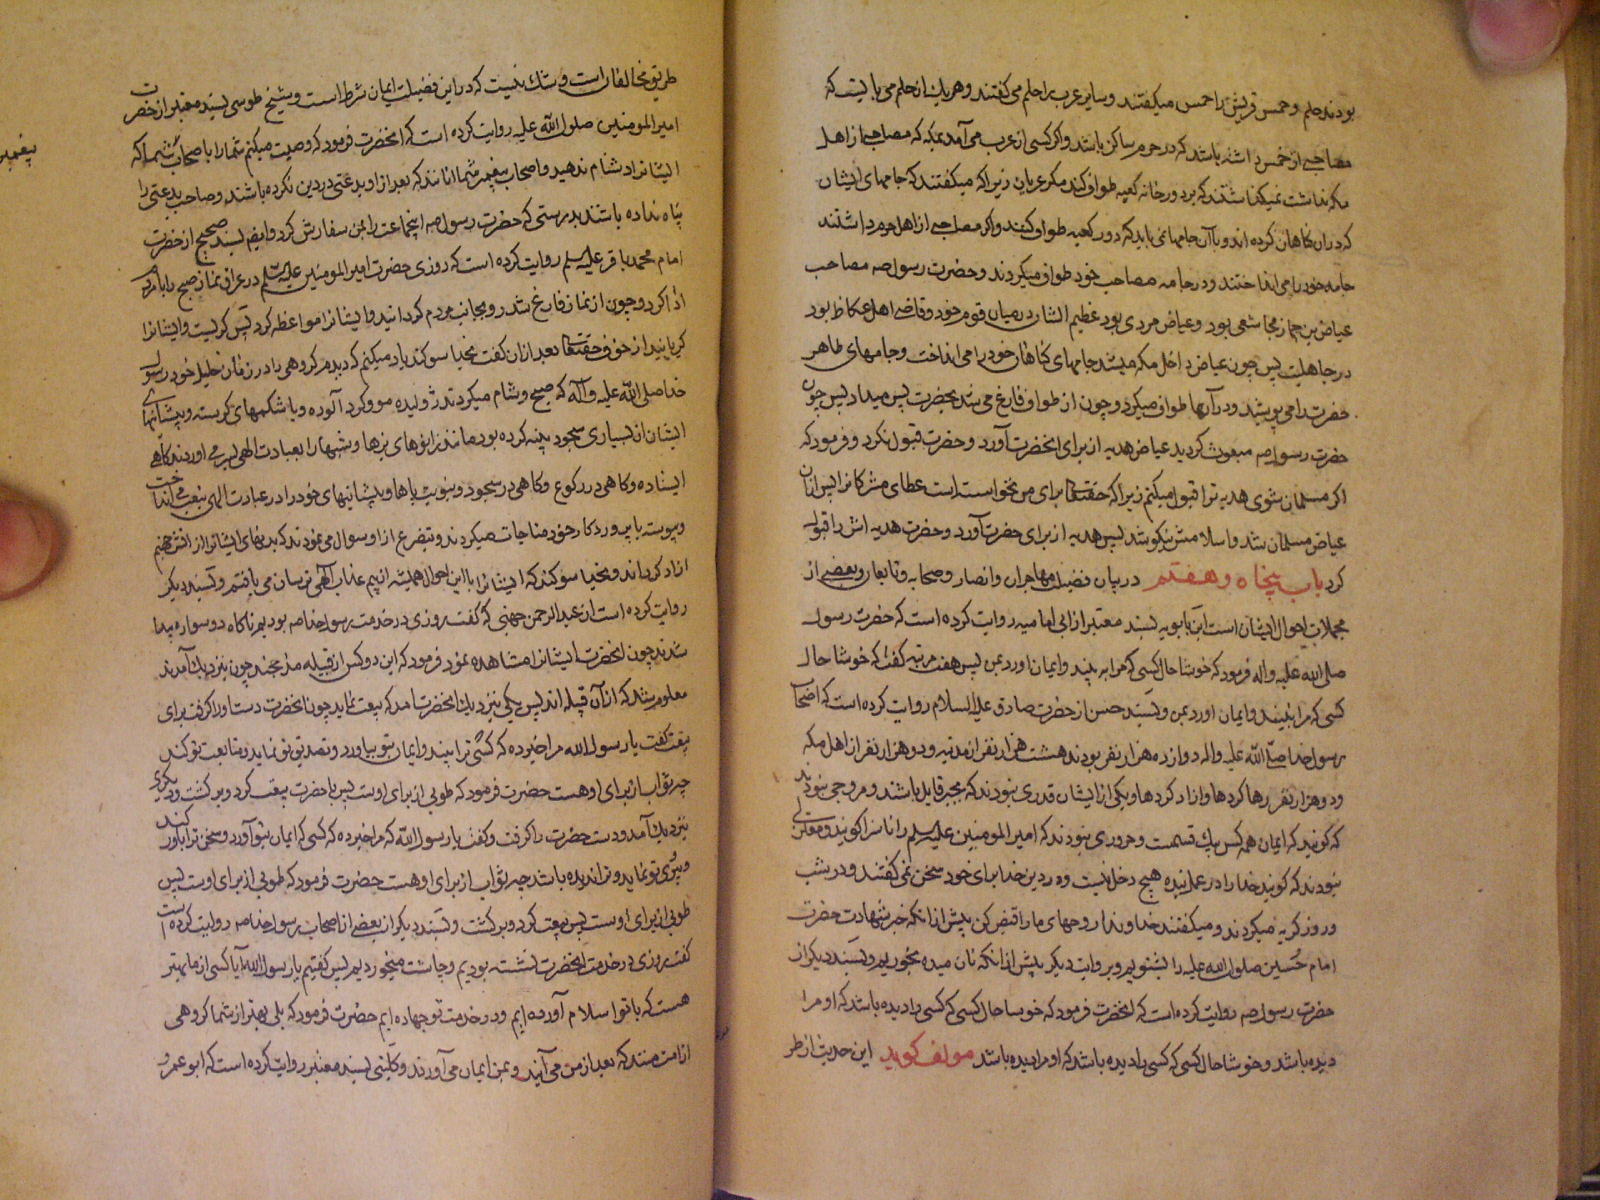 بودند حلم و حمس قریش را حمس میکفتند و سایر عرب را حلم می کفتند و هر یك از حلم می بایست که
مصاحبی از حمس داشته باشد که در حرم ساکن باشد و اکر کسی از عرب می آمد بمکه که مصاحبی از اهل
مکه نداشت نمیکذاشتند که بر دور خانه کعبه طواف کند مکر عریان زیرا که میکفتند که جامهای ایشان
که در ان کناهان کرده اند و با آن جامها نمی باید که دور کعبه طواف کنند و اکر مصاحبی از اهل حرم داشتند
جامه خود را می انداختند و در جامه مصاحب خود طواف میکردند و حضرت رسول صه مصاحب
عیاض بن حمار مجاشعی بود و عیاض مردی بود عظیم الشان در میان قوم خود و قاضی اهل عکاظ بود
در جاهلیت پس چون عیاض داخل مکه میشد جامهای کناهان خود را می انداخت و جامهای طاهر
حضرت را می پوشید و در آنها طواف میکرد و چون از طواف فارغ می شد بحضرت پس میداد پس چون
حضرت رسول صه مبعوث کردید عیاض هدیه از برای انحضرت آورد و حضرت قبول نکرد و فرمود که
اکر مسلمان شوی هدیه ترا قبول میکنم زیرا که حقتعا برای من نخواسته است عطای مشرکانرا پس ازان
عیاض مسلمان شد و اسلامش نیکو شد پس هدیه از برای حضرت آورد و حضرت هدیه اش را قبول
کرد باب پنجاه و هفتم در بیان فضیلت مهاجران و انصار و صحابه و تابعان و بعضی از
مجملات احوال ایشان است ابن بابویه بسند معتبر از ابی امامه روایت کرده است که حضرت رسول
صلی الله علیه و اله فرمود که خوشا حال کسی که مرا به بیند و ایمان اورد بمن پس هفت مرتبه کفت که خوشا حال
کسی که مرا نبیند و ایمان اورد بمن و بسند حسن از حضرت صادق علیه السلام روایت کرده است که اصحاب
رسول خدا صلی الله علیه و اله دوازده هزار نفر بودند هشت هزار نفر از مدینه و دو هزار نفر از اهل مکه
و دو هزار نفر رها کردها و ازاد کردها و یکی از ایشان قدری نبودند که بجبر قایل باشند و مرجی نبودند
که کویند که ایمان همه کس یك قسمت و حروری نبودند که امیر المومنین علیه السلم را ناسزا کویند و معتزلی
نبودند که کویند خدا را در عمل بنده هیچ دخل نیست و در دین خدا برای خود سخن نمی کفتند و در شب
و روز کریه میکردند و میکفتند خداوندا روحهای ما را قبض کن پیش از انکه خبر شهادت حضرت
امام حسین صلوات الله علیه را بشنویم و بروایت دیکر پیش از انکه نان میده بخوریم و بسند دیکر از
حضرت رسول صه روایت کرده است که انحضرت فرمود که خوشا حال کسی که کسی را دیده باشد که او مرا
دیده باشد و خوشا حال کسی که کسی را دیده باشد که او مرا دیده باشد مولف کوید این حدیث از طر
طریق مخالفان است و شك نیست که در این فضیلت ایمان شرط است و شیخ طوسی بسند معتبر از حضرت
امیر المومنین صلوات الله علیه روایت کرده است که انحضرت فرمود که وصیت میکنم شما را باصحاب پیغمبر شما که
ایشانرا دشنام ندهید و اصحاب پیغمبر شما انانند که بعد از او بدعتی در دین نکرده باشند و صاحب بدعتی را
پناه نداده باشند بدرستی که حضرت رسول صه اینجماعت را بمن سفارش کرد و ایضم بسند صحیح از حضرت
امام محمد باقر علیه السلم روایت کرده است که روزی حضرت امیر المومنین علیه السلم در عراق نماز صبح را با مردم
ادا کرد و چون از نماز فارغ شد رو بجانب مردم کردانید و ایشانرا مواعظه کرد پس کریست و ایشانرا
کریانید از خوف حقتعا بعد ازان کفت بخدا سوکند یاد میکنم که دیدم کروهی را در زمان خلیل خود رسول
خدا صلی الله علیه و آله که صبح و شام میکردند ژولیده مو و کرد آلوده و با شکمهای کرسنه و پیشانیهای
ایشان از بسیاری سجود پینه کرده بود مانند زانوهای بزها و شبها را بعبادت الهی بسر می اوردند کاهی
ایستاده و کاهی در رکوع و کاهی در سجود و بنوبت پاها و پیشانیهای خود را در عبادت الهی بتعب می انداختند
و پیوسته با پروردکار خود مناجات میکردند و بتضرع از او سوال می نمودند که بدنهای ایشانرا از اتش جهنم
ازاد کرداند و بخدا سوکند که ایشانرا با این احوال همیشه از بیم عذاب آلهی ترسان می یافتم و بسند دیکر
روایت کرده است از عبد الرحمن جهنی که کفت روزی در خدمت رسول خدا صه بودیم ناکاه دو سواره پیدا
شدند چون انحضرت ایشانرا مشاهده نمود فرمود که این دو کس از قبیله مذحجند چون نزدیك آمدند
معلوم شد که از آن قبیله اند پس یکی نزدیك انحضرت امد که بیعت نماید چون انحضرت دست او را کرفت برای
بیعت کفت یا رسول الله مرا خبر ده که کسی ترا ببیند و ایمان بتو بیاورد و تصدیق تو نماید و متابعت تو کند
چه ثواب از برای او هست حضرت فرمود که طوبی از برای اوست پس با حضرت بیعت کرد و برکشت و دیکری
نزدیك آمد و دست حضرت را کرفت و کفت یا رسول الله که مرا خبر ده که کسی که ایمان بتو آورد و سخن ترا باور کند
و پیروی تو نماید و ترا ندیده باشد چه ثواب از برای او هست حضرت فرمود که طوبی از برای اوست پس
طوبی از برای اوست پس بیعت کرد و برکشت و بسند دیکر از بعضی از اصحاب رسول خدا صه روایت کرده است
کفت روزی در خدمت انحضرت نشسته بودیم و چاشت میخوردیم پس کفتیم یا رسول الله آیا کسی از ما بهتر
هست که با تو اسلام آورده ایم و در خدمت تو جهاد کرده ایم حضرت فرمود که بلی بهتر از شما کروهی
از امت منند که بعد از من می آیند و بمن ایمان می آورند و کلینی بسند معتبر روایت کرده است که ابو عمرو